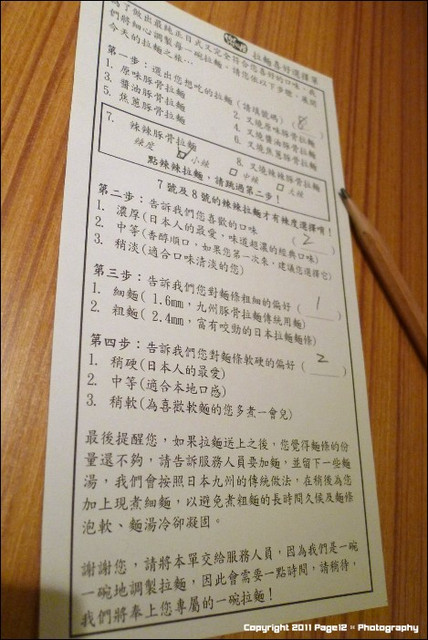 拉麵喜好選擇單
為了做出最純正日式又完全符合您喜好的口味，我
們將細心調製每一碗拉麵，請您依以下步驟，展開
今天的拉麵之旅…
第一步：選出您想吃的拉麵（請填號碼）（ 8 ）
1. 原味豚骨拉麵 2. 叉燒原味豚骨拉麵
3. 醬油豚骨拉麵 4. 叉燒醬油豚骨拉麵
5. 焦蔥豚骨拉麵 6. 叉燒焦蔥豚骨拉麵
7. 辣辣豚骨拉麵 8. 叉燒辣辣豚骨拉麵
辣度 小辣 中辣 大辣
點辣辣拉麵，請跳過第二步！
7 號及 8 號的辣辣拉麵才有辣度選擇唷！
第二步：告訴我們您喜歡的口味 （ 2 ）
1. 濃厚(日本人的最愛，味道超濃的經典口味)
2. 中等(香醇順口，如果您第一次來，建議您選擇它)
3. 稍淡(適合口味清淡的您)
第三步：告訴我們您對麵條粗細的偏好 （ 1 ）
1. 細麵( 1.6mm，九州豚骨拉麵傳統用麵)
2. 粗麵( 2.4mm，富有咬勁的日本拉麵麵條)
第四步：告訴我們您對麵條軟硬的偏好（ 2 ）
1. 稍硬(日本人的最愛)
2. 中等(適合本地口感)
3. 稍軟(為喜歡軟麵的您多煮一會兒)
最後提醒您，如果拉麵送上之後，您覺得麵條的份
量還不夠，請告訴服務人員要加麵，並留下一些麵
湯，我們會按照日本九州的傳統做法，在稍後為您
加上現煮細麵，以避免煮粗麵的長時間久候及麵條
泡軟、麵湯冷卻凝固。
謝謝您，請將本單交給服務人員，因為我們是一碗
一碗地調製拉麵，因此會需要一點時間，請稍待，
我們將奉上您專屬的一碗拉麵！
Copyright 2011 Page12 :: Photography